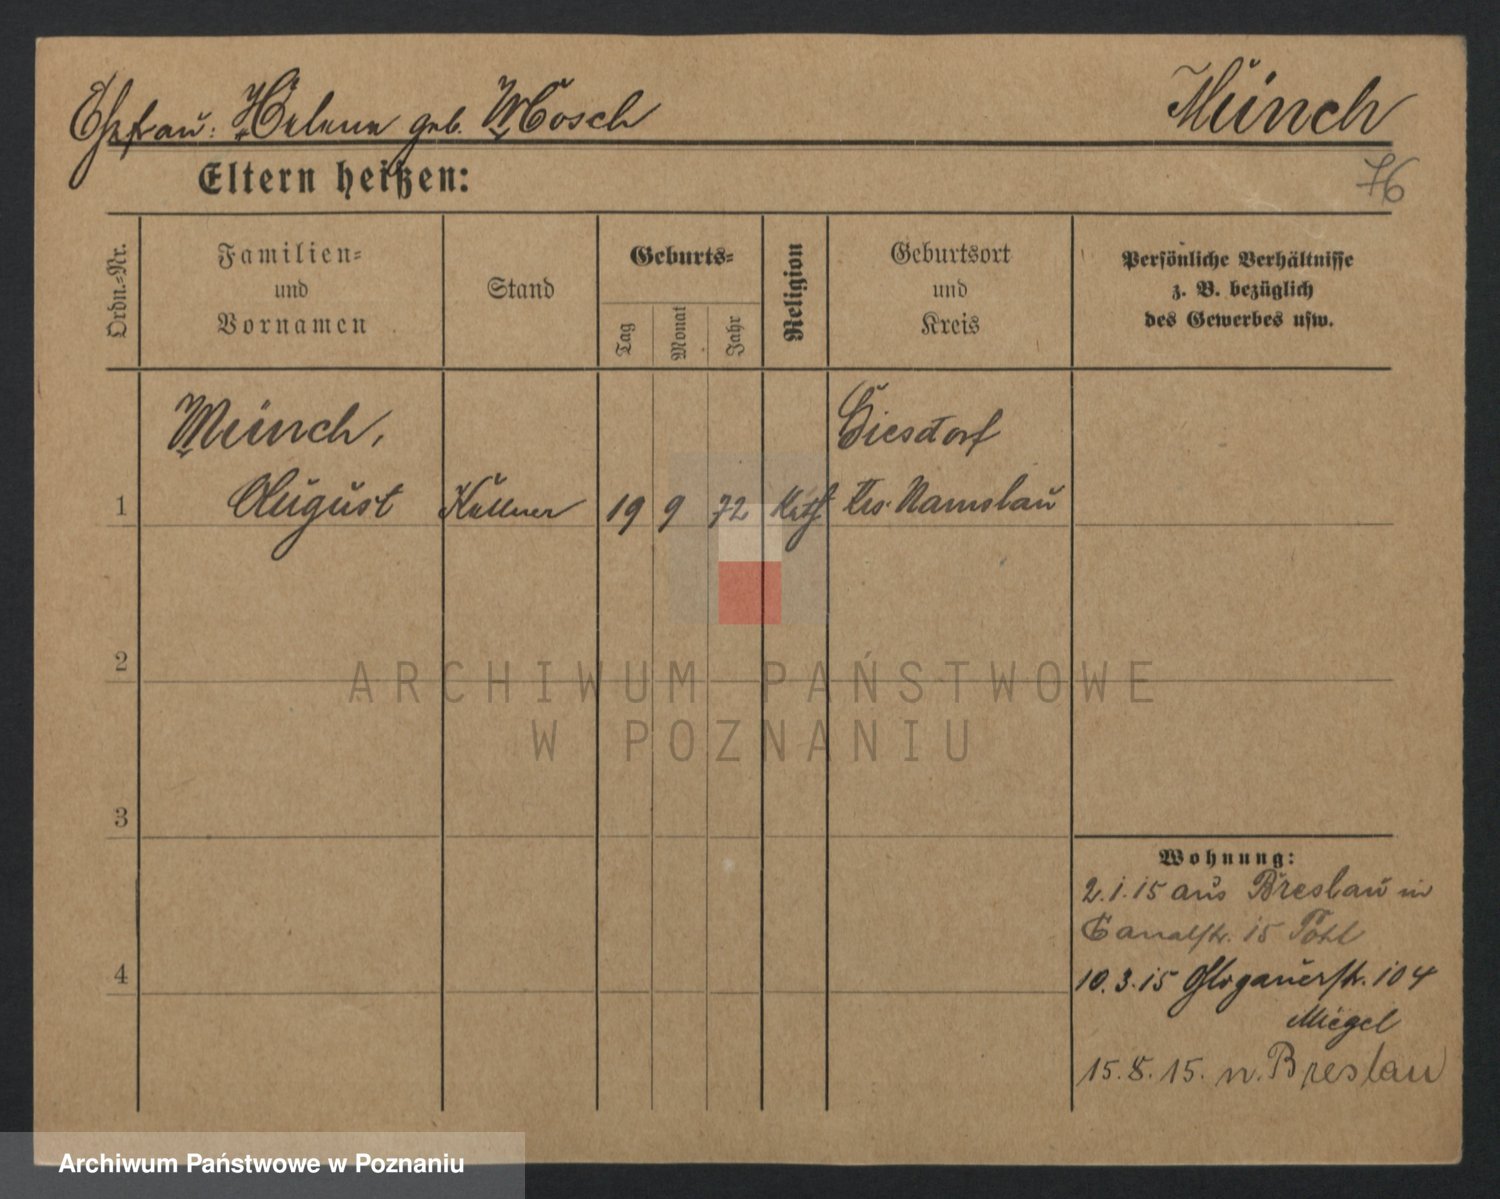 Ehefrau: Helene geb. Mosch
Münch
76
Eltern heißen:
Ordn.=Nr.
Familien=
und
Vornamen
Stand
Geburts=
Tag
Monat
Jahr
Religion
Geburtsort
und
Kreis
Persönliche Verhältnisse
z. B. bezüglich
des Gewerbes usw.
Münch,
Giesdorf
1
August
Kellner
19
9
72
Kath
Krs. Namslau
2
ARCHIWUM PAŃSTWOWE
W POZNANIU
3
Wohnung:
2.1.15 aus Breslau in
Canalstr. 15
4
10.3.15 Glogauerstr. 104
Miegel
15.8.15. n. Breslau
Archiwum Państwowe w Poznaniu